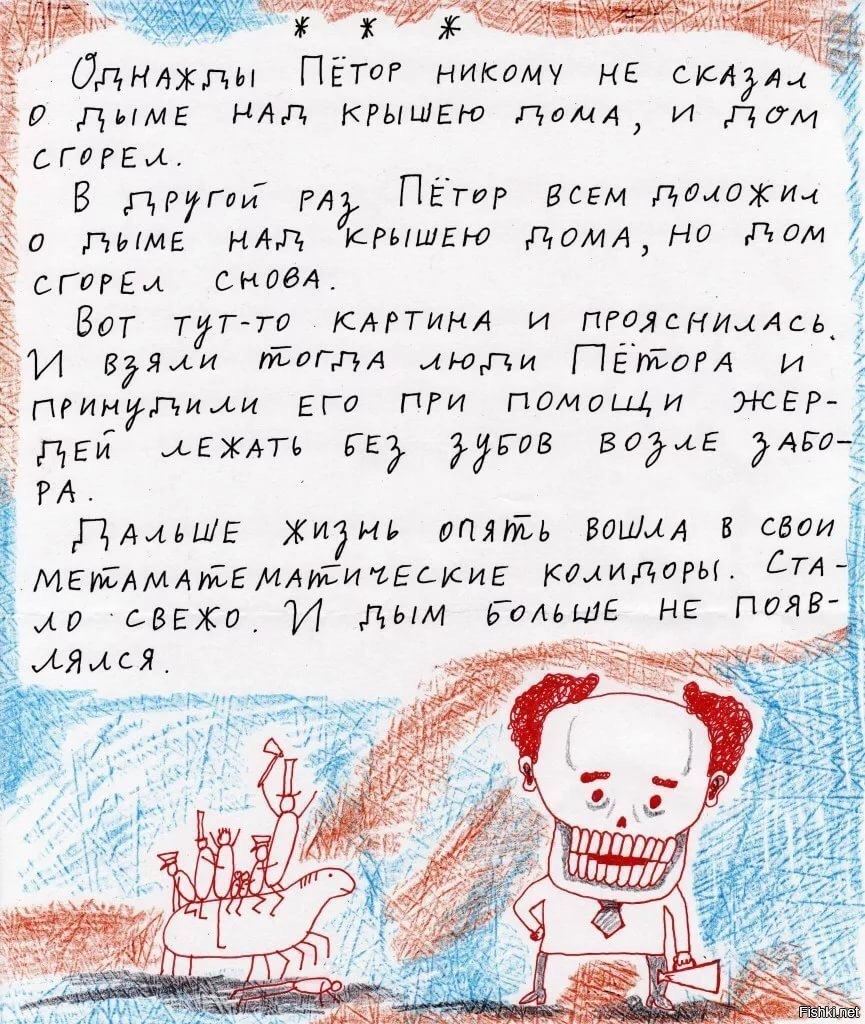 * * *
Однажды Пётор никому не сказал
о дыме над крышею дома, и дом
сгорел.
В другой раз Пётор всем доложил
о дыме над крышею дома, но дом
сгорел снова.
Вот тут-то картина и прояснилась.
И взяли тогда люди Пётора и
принудили его при помощи жер-
дей лежать без зубов возле забо-
ра.
Дальше жизнь опять вошла в свои
метаматематические колидоры. Ста-
ло свежо. И дым больше не появ-
лялся.
Fishki.net